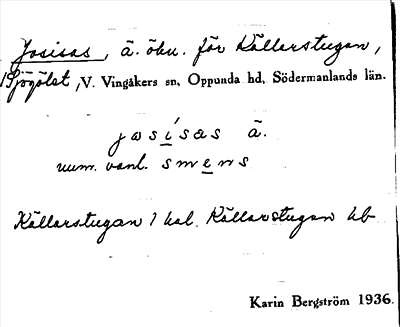 Josisas, ä. öku. för Källarstugan,
Sjögölet, V. Vingåkers sn, Oppunda hd, Södermanlands län.
josísas ä.
num. vanl. smens
Källarstugan 1 hal. Källarstugan hb
Karin Bergström 1936.